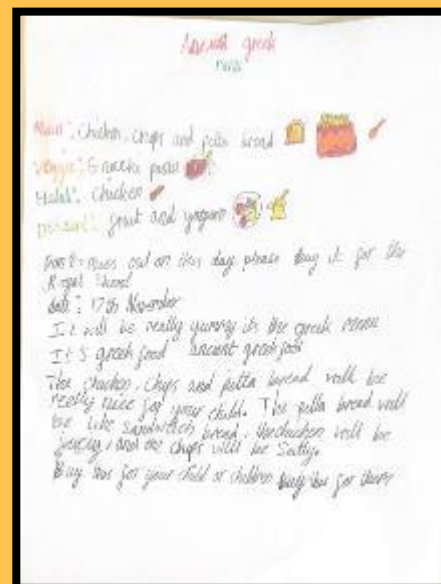 Ancient greek
menu
Main: Chicken, chips and pitta bread
Veggie: Greek pasta
Halal: chicken
Dessert: fruit and yogurt
out on this day please buy it for the
Royal School
date: 17th November
It will be really yummy its the greek menu
It's greek food ancient greek food
The chicken, chips and pitta bread will be
really nice for your child. The pitta bread will
be like sandwich bread, the chicken will be
juicy, and the chips will be Salty.
Buy this for your child or children buy this for them